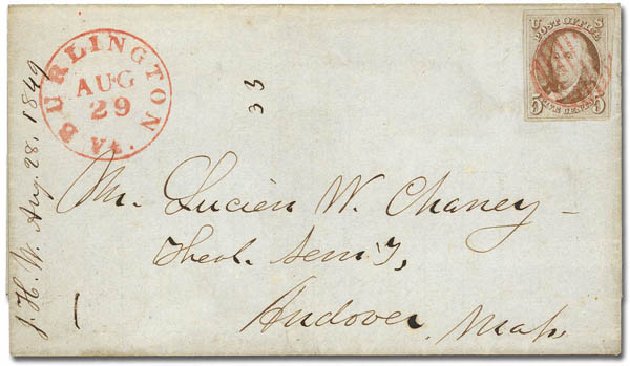 BURLINGTON
AUG
29
Vt.
U S
POST OFFICE
5 FIVE CENTS 5
33
J. H. W. Aug. 28, 1849
Mr. Lucien W. Chaney -
Theol. Sem'y,
Andover, Mass.